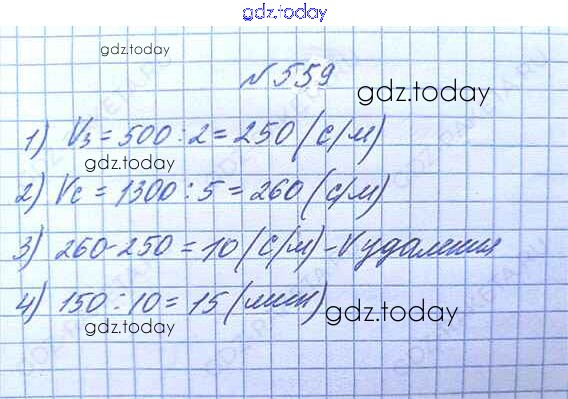 gdz.today
gdz.today
№559
gdz.today
1) Vз = 500 : 2 = 250 (с/м)
gdz.today
2) Vс = 1300 : 5 = 260 (с/м)
3) 260 - 250 = 10 (с/м) - V удаления
4) 150 : 10 = 15 (мин)
gdz.today
gdz.today